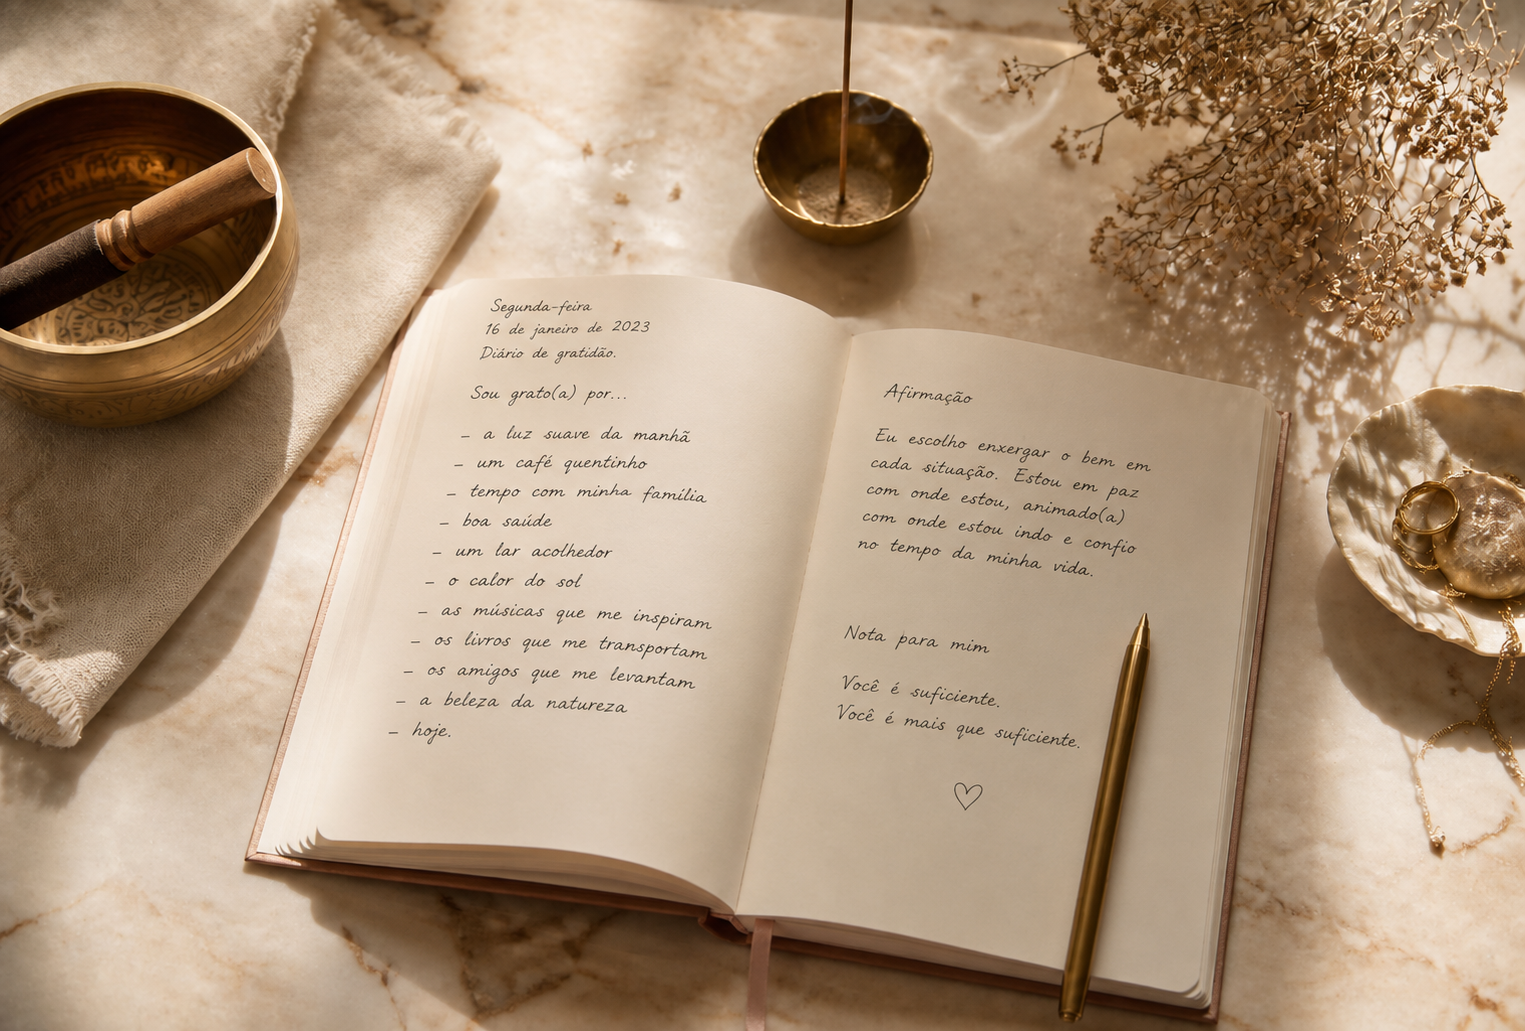 Segunda-feira
16 de janeiro de 2023
Diário de gratidão.
Sou grato(a) por...
– a luz suave da manhã
– um café quentinho
– tempo com minha família
– boa saúde
– um lar acolhedor
– o calor do sol
– as músicas que me inspiram
– os livros que me transportam
– os amigos que me levantam
– a beleza da natureza
– hoje.
Afirmação
Eu escolho enxergar o bem em
cada situação. Estou em paz
com onde estou, animado(a)
com onde estou indo e confio
no tempo da minha vida.
Nota para mim
Você é suficiente.
Você é mais que suficiente.